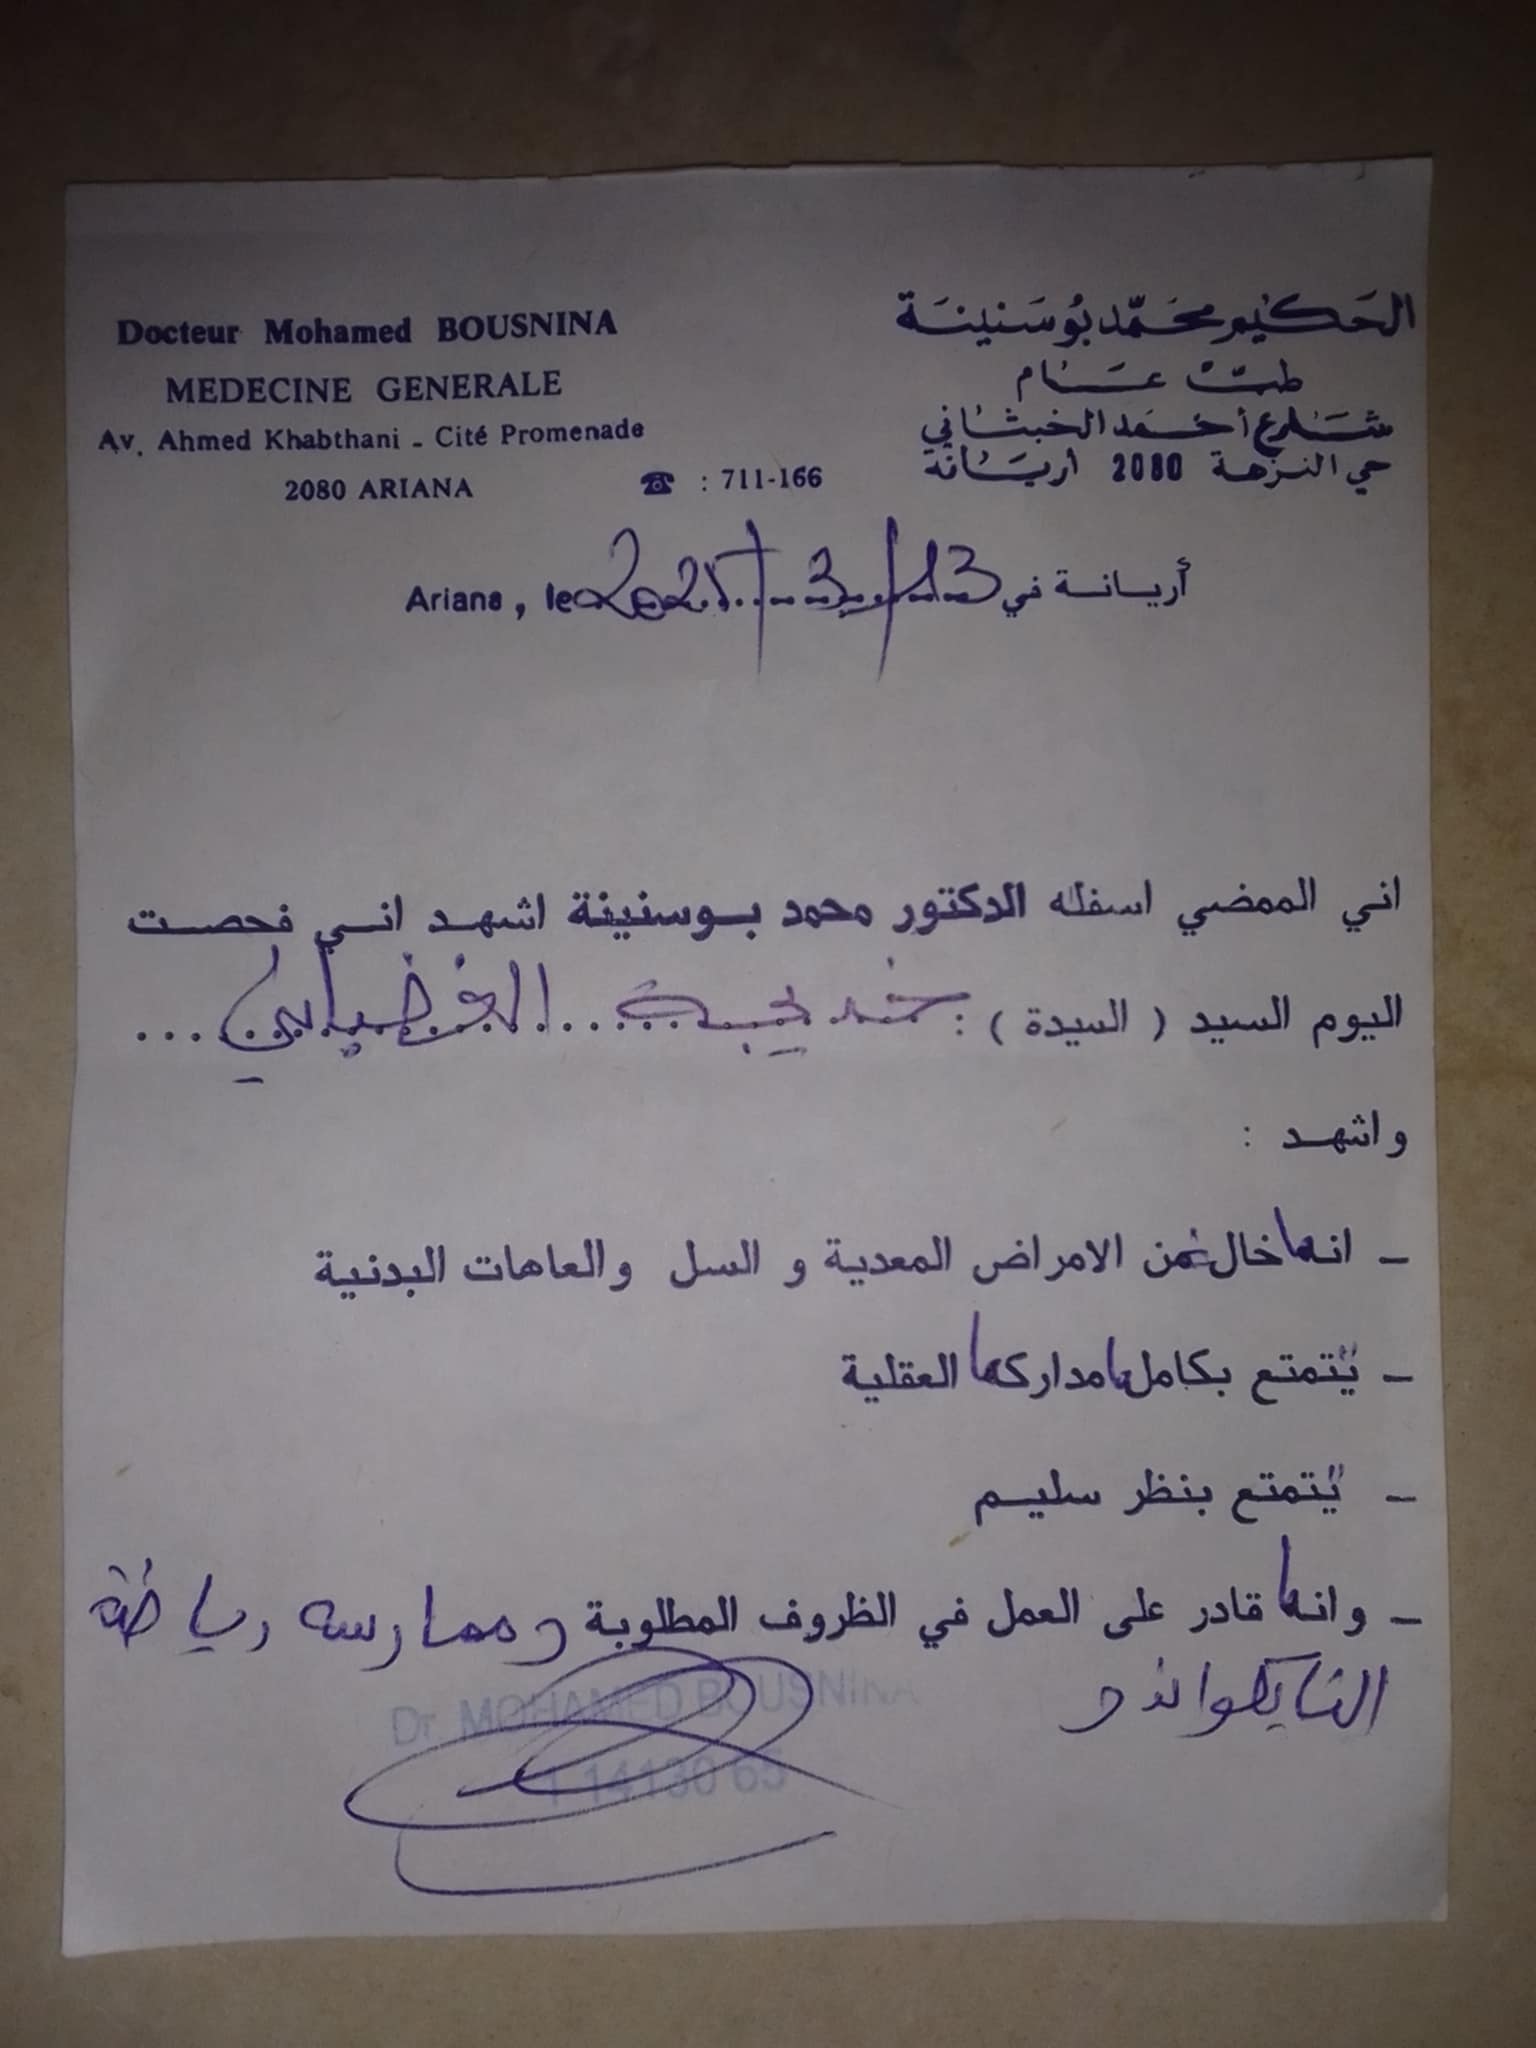 Docteur Mohamed BOUSNINA
MEDECINE GENERALE
Av. Ahmed Khabthani - Cité Promenade
2080 ARIANA
☎ : 711-166
الحكيم محمد بوسنينة
طب عام
شارع أحمد الخبثاني
حي النزهة 2080 أريانة
Ariana, le 2025/3/13 أريانة في
اني الممضي اسفله الدكتور محمد بوسنينة اشهد اني فحصت
اليوم السيد ( السيدة ) : خديجة الغضباني
واشهد :
- انها خال من الامراض المعدية و السل والعاهات البدنية
- يتمتع بكامل مداركها العقلية
- يتمتع بنظر سليم
- وانها قادر على العمل في الظروف المطلوبة وممارسة رياضة
التايكواندو
Dr. MOHAMED BOUSNINA
1 14130 65